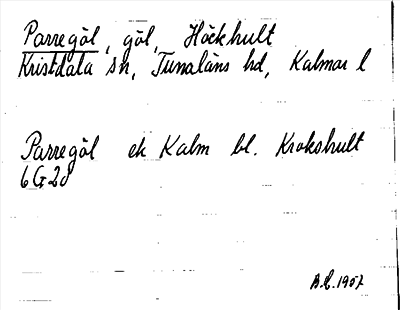 Parregöl, göl, Höckhult
Kristdala sn, Tunaläns hd, Kalmar l
Parregöl ek Kalm bl. Krokshult
6G2d
1907